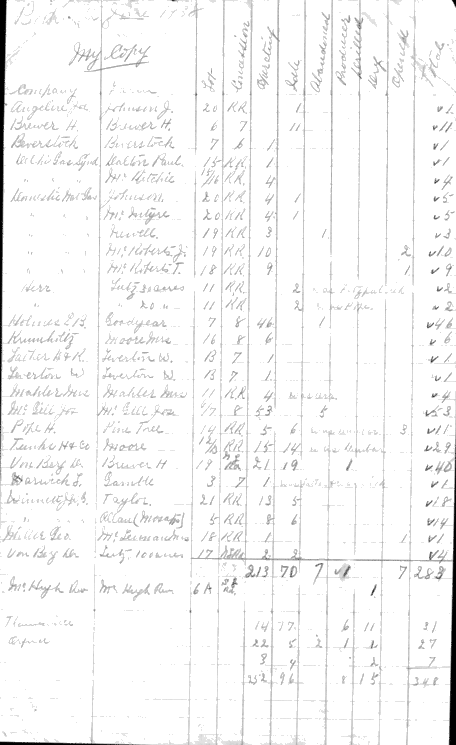 June
My Copy
Company Farm Lot Concession Operating Idle Abandoned Producer Drilled Dry Opened Total
Angeline Joe Johnson J. 20 RR 1 v1
Brewer H. Brewer H. 6 7 11 v11
Beverstock Beverstock 7 6 1 v1
Dalton Paul 15 RR 1 v1
" " " McRitchie 15/16 RR 4 v4
Domestic Nat Gas Johnson 20 RR 4 1 v5
" " " McIntyre 20 RR 4 1 v5
" " " Newell 19 RR 3 1 v3
" " " McRoberts J. 19 RR 10 2 v10
" " " McRoberts T. 18 RR 9 1 v9
Herr Lutz 30 acres 11 RR 2 was Fitzpatrick v2
" " 20 " 11 RR 2 v2
Holmes E.B. Goodyear 7 8 46 1 v46
Krumholtz Moore Mrs 16 8 6 v6
Luther H & R. Leverton W. 13 7 1 v1
Leverton W Leverton W. 13 7 1 v1
Mahler Mrs Mahler Mrs 11 RR 4 v4
McGill Jos McGill Jos 6/7 8 53 5 v53
Pope H. Pine Tree 14 RR 5 6 3 v11
H & Co Moore RR 15 14 v29
Von Berg Dr. Brewer H 19 21 19 1 v40
Warwick L. Gamble 3 7 1 v1
Taylor 21 RR 13 5 v18
5 RR 8 6 v14
Miller Geo 18 RR 1 1 v1
Von Berg Dr. Lutz 100 acres 17 2 2 v4
213 70 7 v1 7 283
McHugh Rev McHugh Rev 6A 1
14 17 6 11 31
Orford 22 5 2 1 1 27
3 4 2 7
252 96 8 15 348